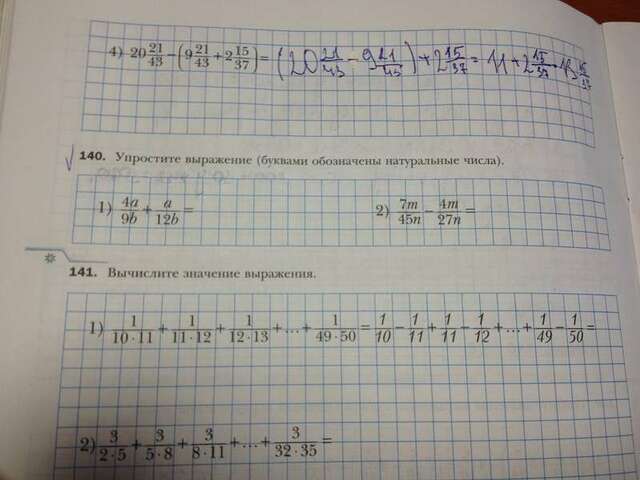 4) 20 21/43 − (9 21/43 + 2 15/37) = (20 21/43 − 9 21/43) + 2 15/37 = 11 + 2 15/37
140. Упростите выражение (буквами обозначены натуральные числа).
1) 4a/9b + a/12b = 2) 7m/45n − 4m/27n =
141. Вычислите значение выражения.
1) 1/(10·11) + 1/(11·12) + 1/(12·13) + ... + 1/(49·50) = 1/10 − 1/11 + 1/11 − 1/12 + ... + 1/49 − 1/50 =
2) 3/(2·5) + 3/(5·8) + 3/(8·11) + ... + 3/(32·35) =